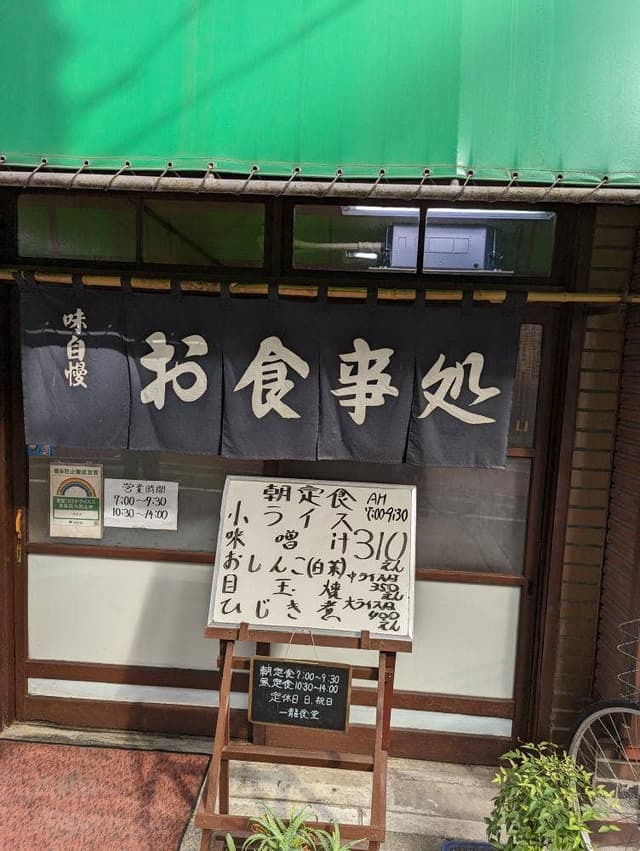 味自慢
お食事処
営業時間
7:00～9:30
10:30～14:00
朝定食 AM 7:00-9:30
小ライス
味噌汁 310えん
おしんこ(白菜) 中ライスは 350えん
目玉焼
ひじき煮 大ライスは 400えん
朝定食 7:00～9:30
昼定食 10:30～14:00
定休日 日、祝日
一龍食堂